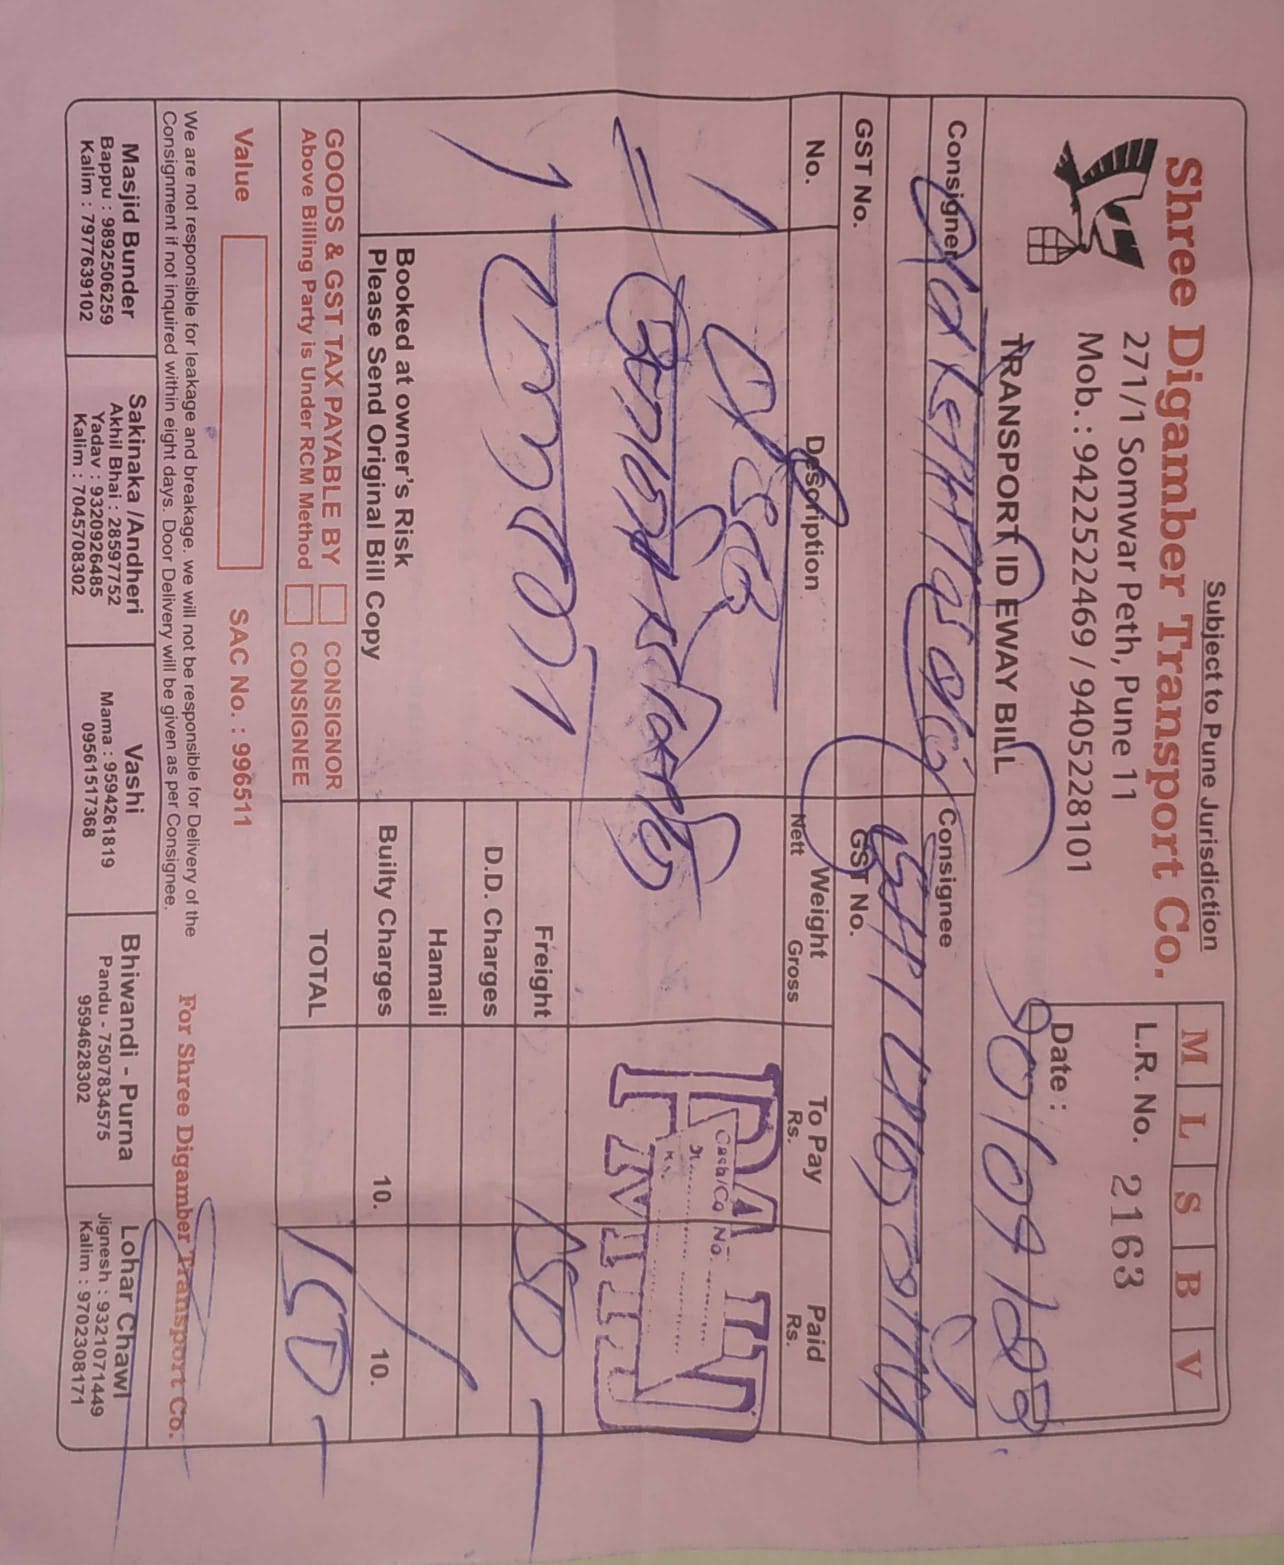 Subject to Pune Jurisdiction
Shree Digamber Transport Co.
271/1 Somwar Peth, Pune 11
Mob. : 9422522469 / 9405228101
TRANSPORT ID EWAY BILL
M L S B V
L.R. No. 2163
Date :
Consigner
Consignee
GST No.
GST No.
No. Description Weight To Pay Paid
Nett Gross Rs. Rs.
1
PAID
Cash/Co No.
Freight 150
D.D. Charges
Hamali
Builty Charges 10. 10.
TOTAL 150
Booked at owner's Risk
Please Send Original Bill Copy
GOODS & GST TAX PAYABLE BY CONSIGNOR
Above Billing Party is Under RCM Method CONSIGNEE
Value SAC No. : 996511
For Shree Digamber Transport Co.
We are not responsible for leakage and breakage. we will not be responsible for Delivery of the
Consignment if not inquired within eight days. Door Delivery will be given as per Consignee.
Masjid Bunder
Bappu : 9892506259
Kalim : 7977639102
Sakinaka /Andheri
Akhil Bhai : 28597752
Yadav : 9320926485
Kalim : 7045708302
Vashi
Mama : 9594261819
09561517368
Bhiwandi - Purna
Pandu - 7507834575
9594628302
Lohar Chawl
Jignesh : 9321071449
Kalim : 9702308171